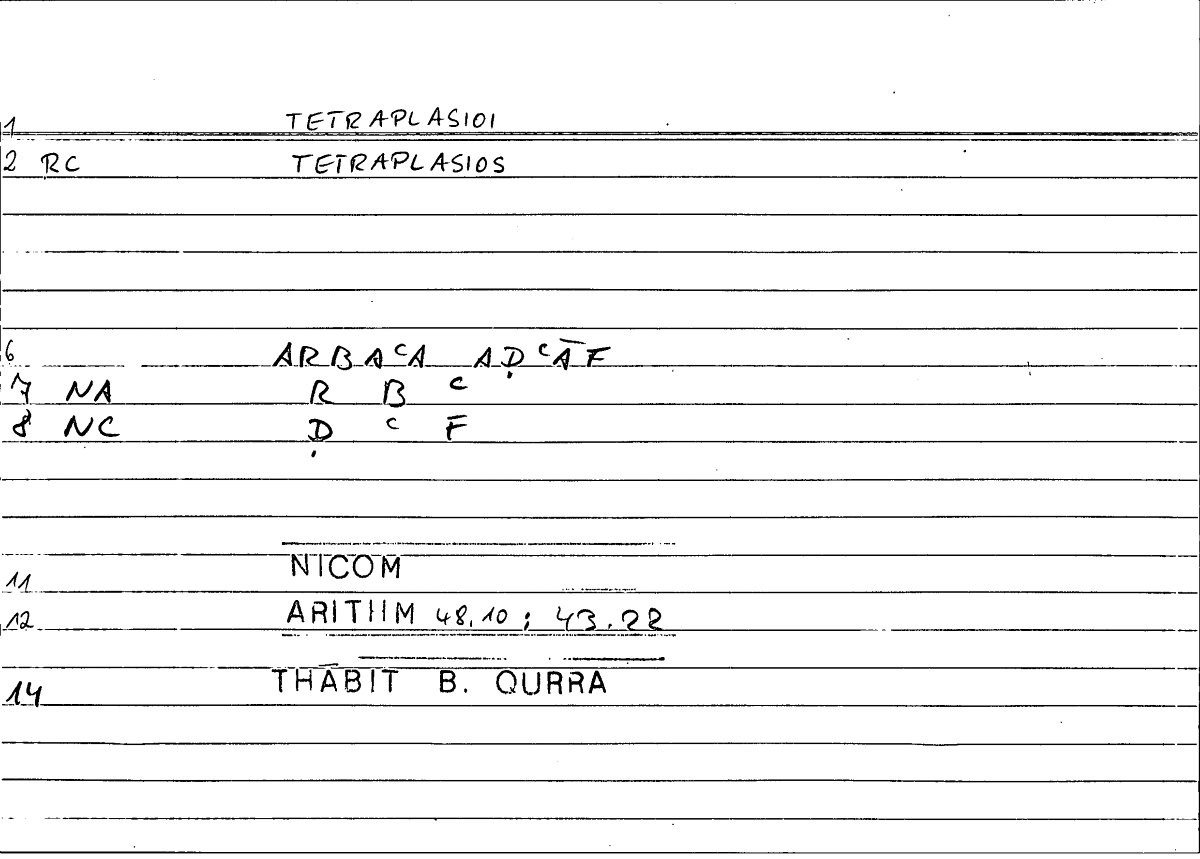 1 TETRAPLASIOI
2 RC TETRAPLASIOS
6 ARBAᶜA AḌᶜĀF
7 NA R B ᶜ
8 NC Ḍ ᶜ F
11 NICOM
12 ARITHM 48.10; 43.22
14 THĀBIT B. QURRA